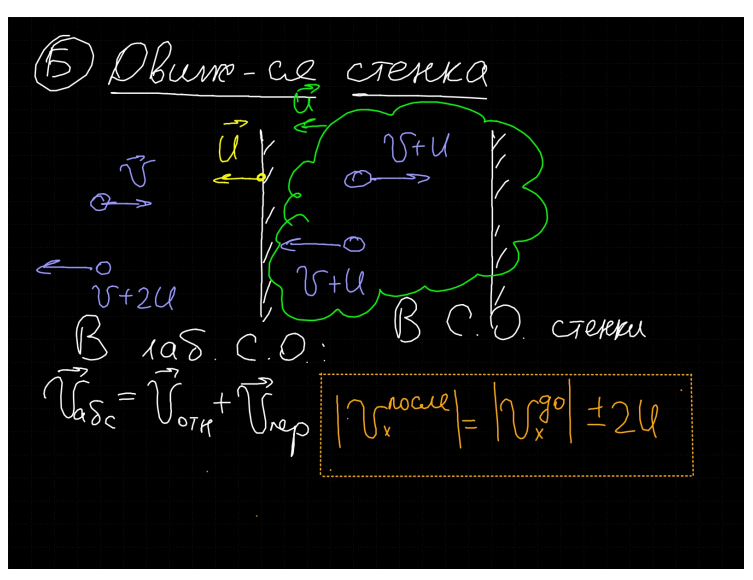 Б Движ-ся стенка
u
u
v+u
v
v+u
v+2u
В лаб. С.О.:
В С.О. стенки
v абс = v отн + v пер
|v x после| = |v x до| ± 2u